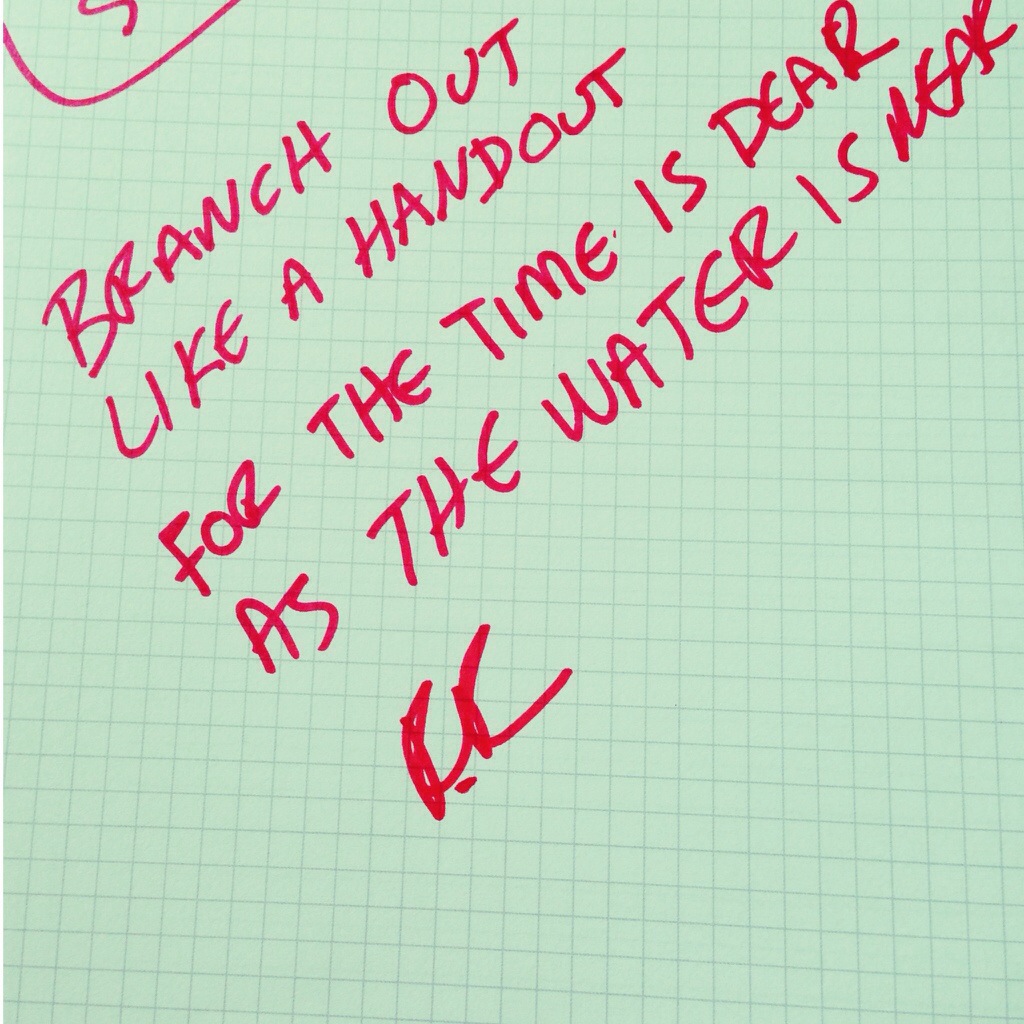 S
BRANCH OUT
LIKE A HANDOUT
FOR THE TIME IS DEAR
AS THE WATER IS NEAR